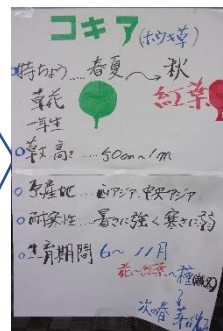 コキア(ホウキ草)
○特ちょう…春夏〜秋
紅葉
草花
一年生
○草丈高さ……50cm〜1m
○原産地…西アジア.中央アジア
○耐寒性…暑さに強く寒さに弱
○生育期間 6〜11月
花〜紅葉〜種
次の春